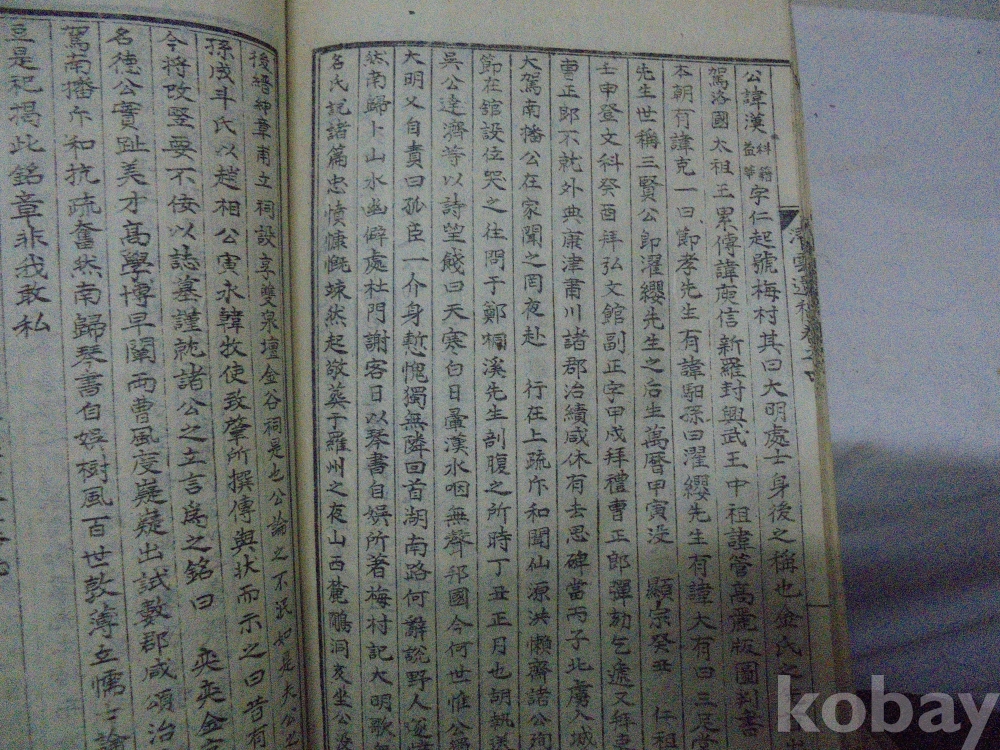 公諱漢
字仁起號梅村其曰大明處士身後之稱也金氏之
駕洛國太祖王累傳諱庾信新羅封興武王中祖諱管高麗版圖判書
本朝有諱克一曰節孝先生有諱馹孫曰濯纓先生有諱大有曰三足堂
先生世稱三賢公卽濯纓先生之后生萬曆甲寅没 顯宗癸丑 仁祖
壬申登文科癸酉拜弘文館副正字甲戌拜禮曹正郎彈劾乞遞又拜
曹正郎不就外典康津肅川諸郡治績咸休有去思碑當丙子北虜入城
大駕南播公在家聞之罔夜赴 行在上疏斥和聞仙源洪懶齋諸公殉
節在舘設位哭之往問于鄭桐溪先生剖腹之所時丁丑正月也胡執
吳公達濟等以詩坐餞曰天寒白日暈漢水咽無聲邦國今何世惟公
大明又自責曰孤臣一介身慙愧獨無隣回首湖南路何辭說野人遂
然南歸卜山水幽僻處杜門謝客日以琴書自娛所著梅村記大明歌
名氏記諸篇忠憤慷慨竦然起敬葬于羅州之 山西麓鵰洞亥坐公没
後縉紳章甫立祠設享雙泉壇金谷祠是也公論之不泯如是夫公之
孫成斗氏以趙相公寅永韓牧使致肇所撰傳與狀而示之曰昔有
今將改竪要不侫以誌墓謹就諸公之立言爲之銘曰 奕奕金
名德公實趾美才高學博早闡兩曹風度嶷嶷出試數郡咸頌治
駕南播斥和抗疏奮然南歸琴書自娛樹風百世敦薄立懦士論
豆是祀揭此銘章非我敢私
kobay